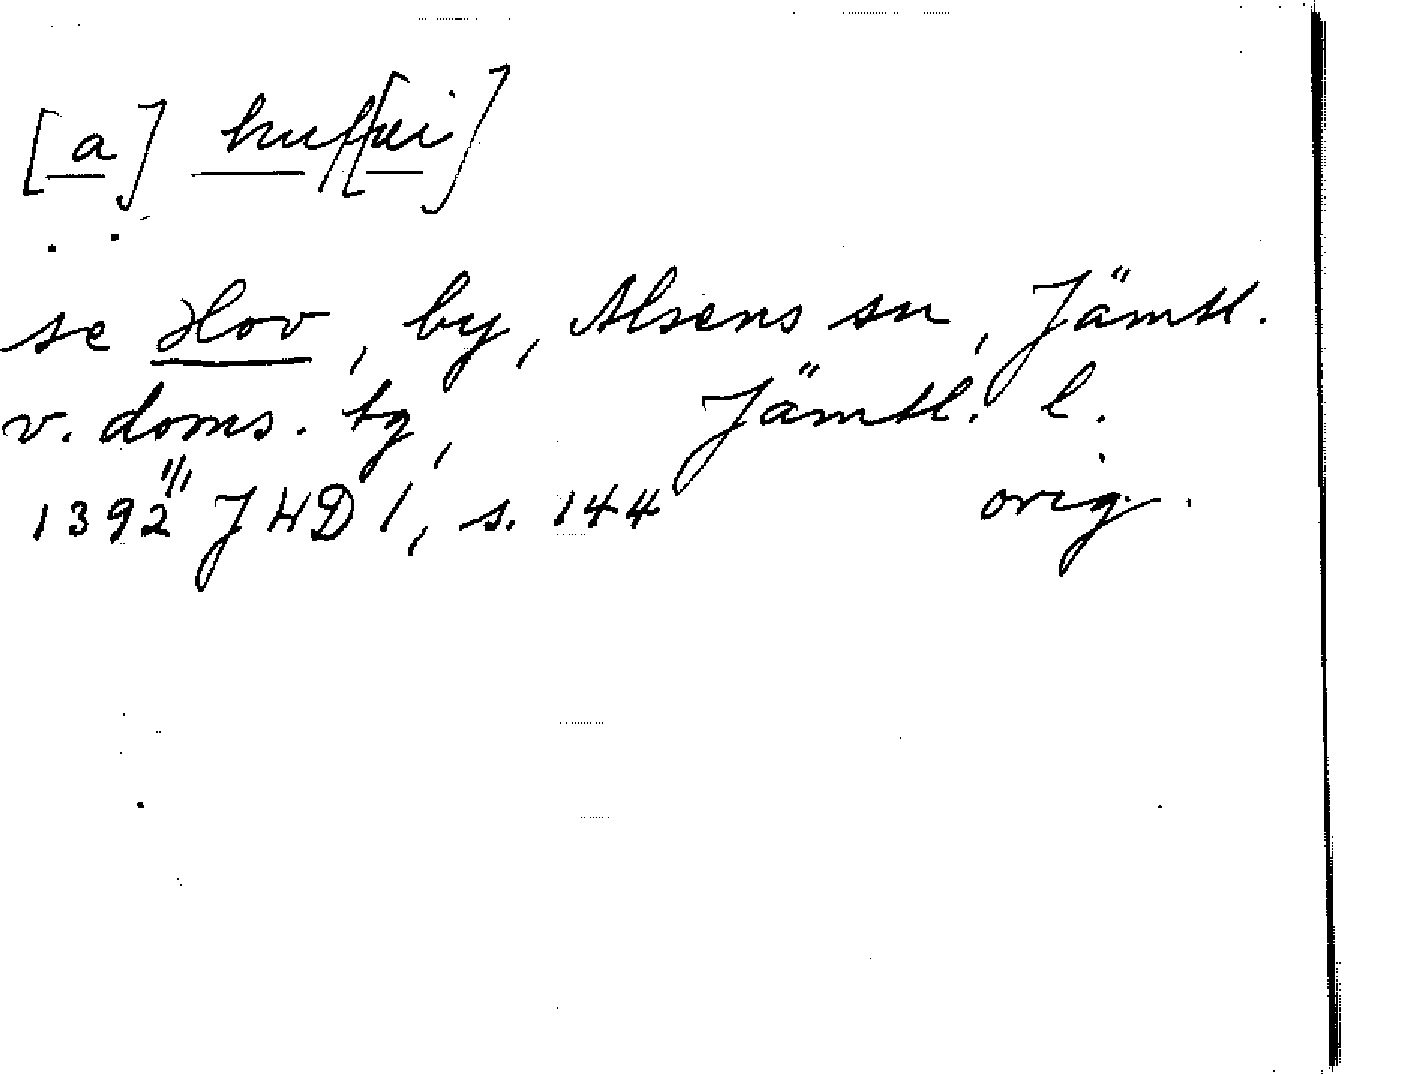 [a] huf[wi]
se Hov, by, Alsens sn, Jämtl.
v. doms. tg, Jämtl. l.
1392 1/1 JHD 1, s. 144 orig.